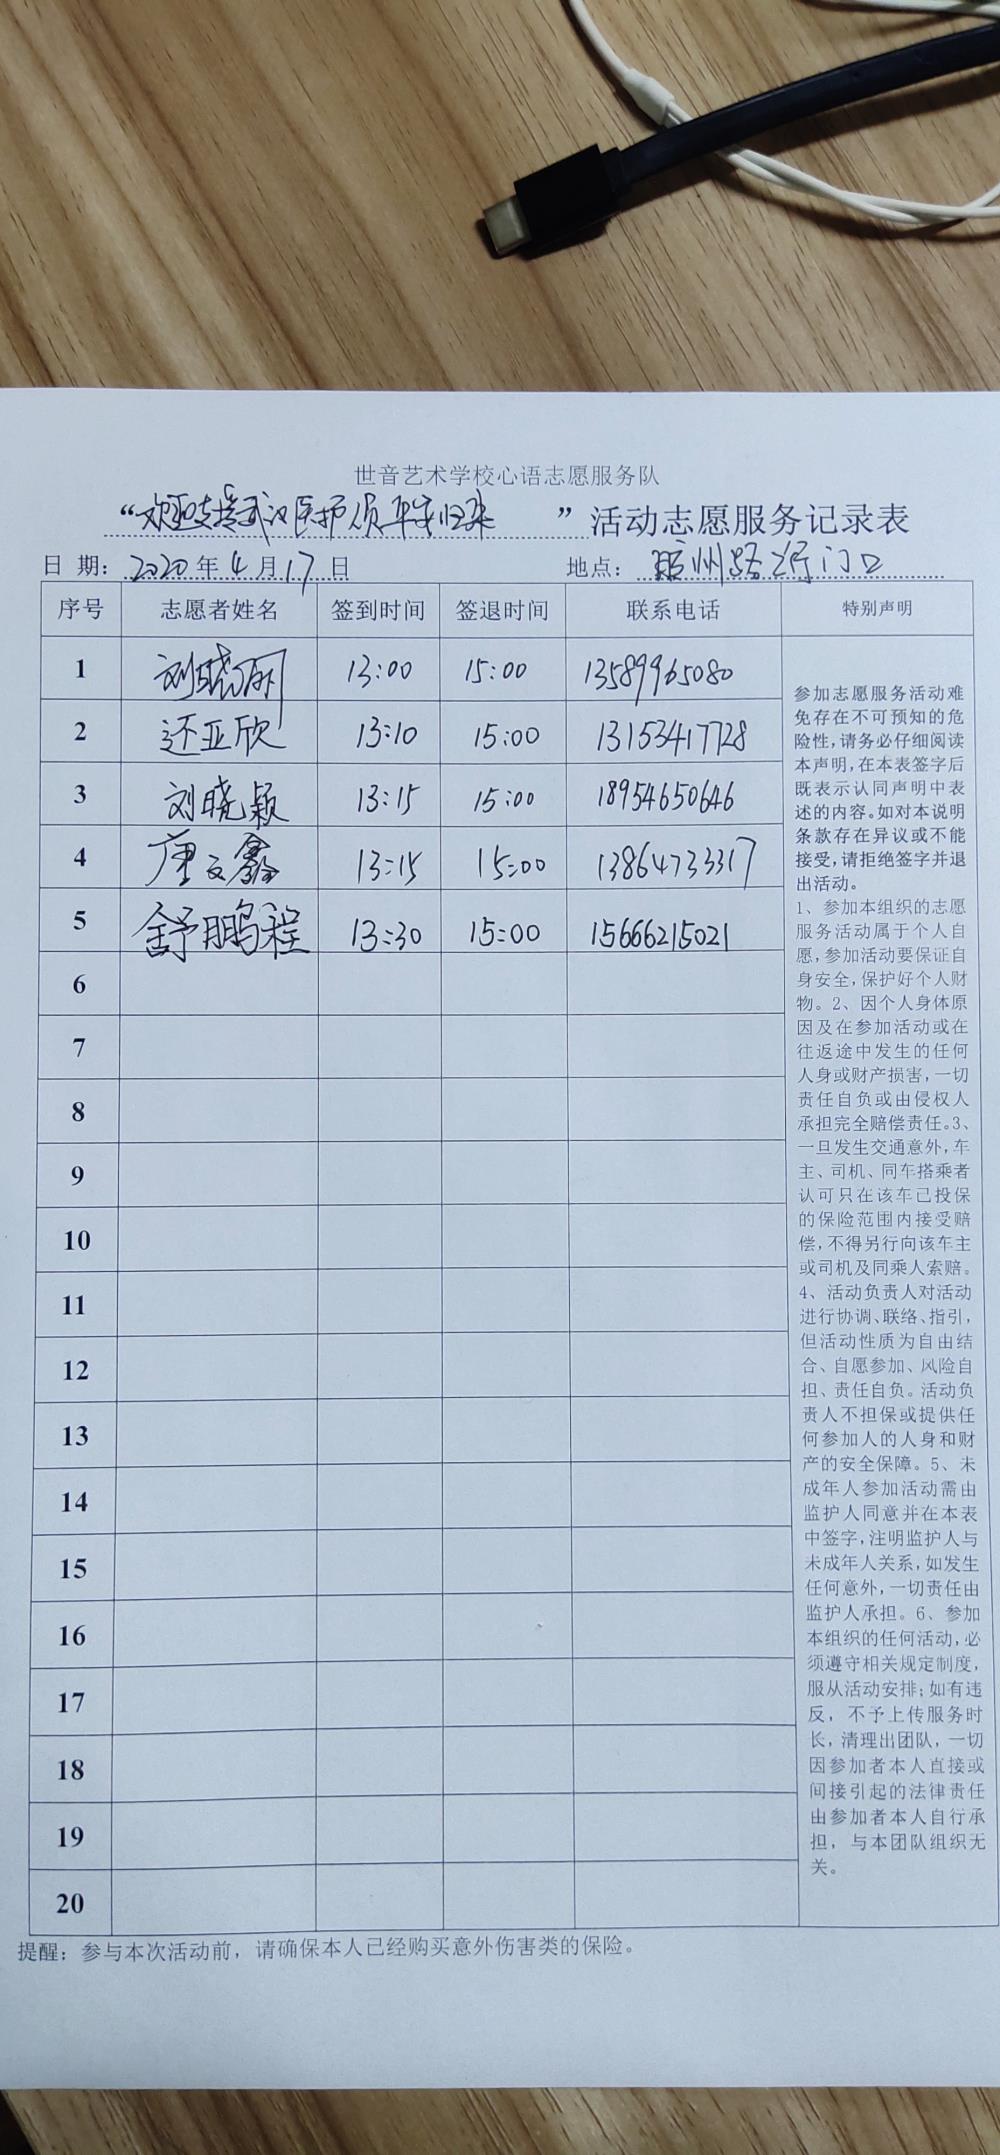 世音艺术学校心语志愿服务队
“欢迎支援武汉医护人员平安归来”活动志愿服务记录表
日 期：2020年4月17日 地点：胶州路 门口
序号 志愿者姓名 签到时间 签退时间 联系电话 特别声明
1 刘晓丽 13:00 15:00 13589965080
2 还亚欣 13:10 15:00 13153417728
3 刘晓颖 13:15 15:00 18954650646
4 唐文鑫 13:15 15:00 13864733317
5 舒鹏程 13:30 15:00 15666215021
6
7
8
9
10
11
12
13
14
15
16
17
18
19
20
参加志愿服务活动难
免存在不可预知的危
险性，请务必仔细阅读
本声明，在本表签字后
既表示认同声明中表
述的内容。如对本说明
条款存在异议或不能
接受，请拒绝签字并退
出活动。
1、参加本组织的志愿
服务活动属于个人自
愿，参加活动要保证自
身安全，保护好个人财
物。2、因个人身体原
因及在参加活动或在
往返途中发生的任何
人身或财产损害，一切
责任自负或由侵权人
承担完全赔偿责任。3、
一旦发生交通意外，车
主、司机、同车搭乘者
认可只在该车已投保
的保险范围内接受赔
偿，不得另行向该车主
或司机及同乘人索赔。
4、活动负责人对活动
进行协调、联络、指引，
但活动性质为自由结
合、自愿参加、风险自
担、责任自负。活动负
责人不担保或提供任
何参加人的人身和财
产的安全保障。5、未
成年人参加活动需由
监护人同意并在本表
中签字，注明监护人与
未成年人关系，如发生
任何意外，一切责任由
监护人承担。6、参加
本组织的任何活动，必
须遵守相关规定制度，
服从活动安排；如有违
反，不予上传服务时
长，清理出团队，一切
因参加者本人直接或
间接引起的法律责任
由参加者本人自行承
担，与本团队组织无
关。
提醒：参与本次活动前，请确保本人已经购买意外伤害类的保险。